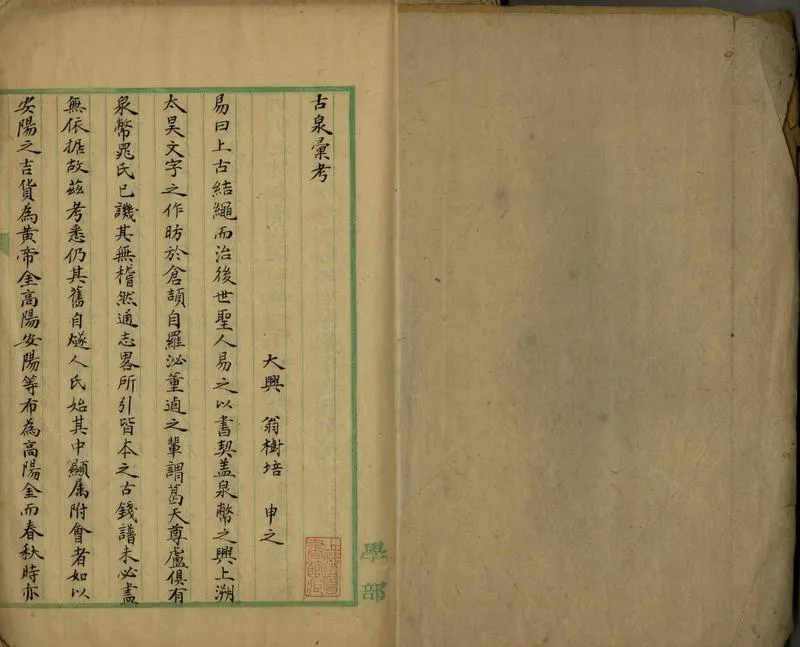 古泉彙考
大興 翁樹培 申之
易曰上古結繩而治後世聖人易之以書契盖泉幣之興上溯
太昊文字之作昉於倉頡自羅泌董逌之輩謂葛天尊盧俱有
泉幣晁氏已譏其無稽然通志畧所引皆本之古錢譜未必盡
無依据故茲考悉仍其舊自燧人氏始其中顯属附會者如以
安陽之吉貨為黄帝金高陽安陽等布為高陽金而春秋時亦
學部
上海圖書館藏